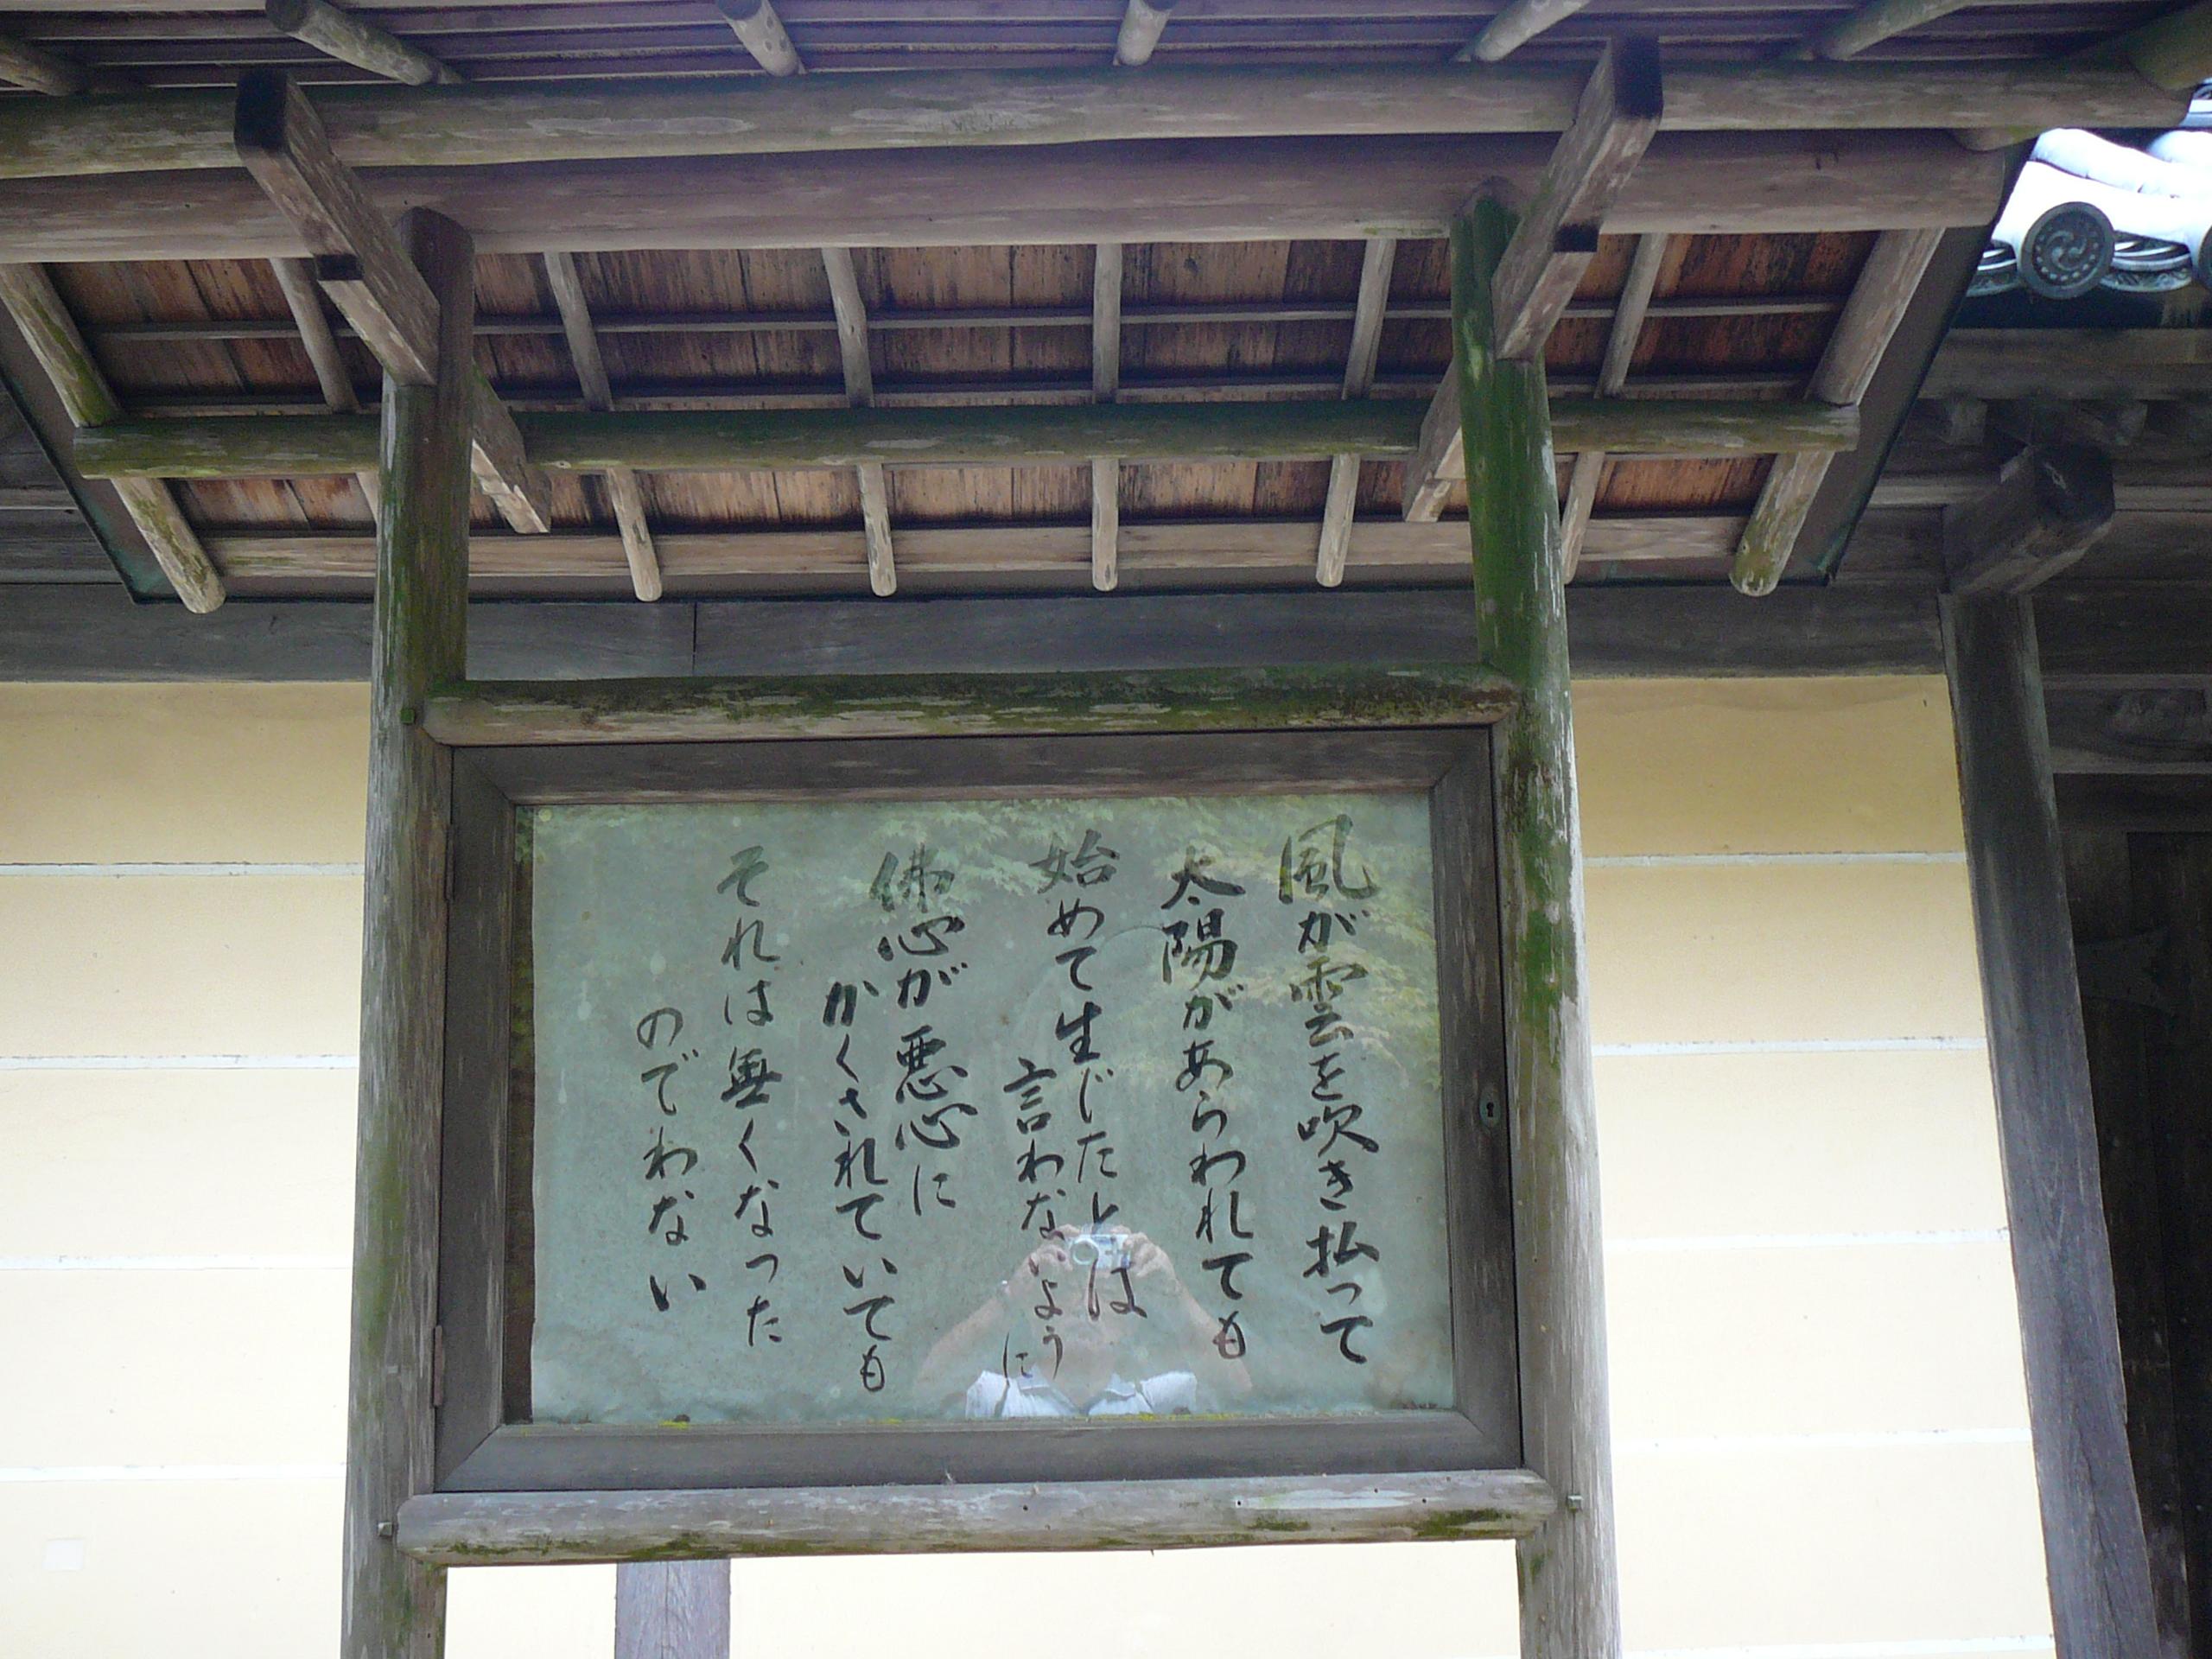 風が雲を吹き払って
太陽があらわれても
始めて生じたとは
言わないように
佛心が悪心に
かくされていても
それは無くなった
のでわない